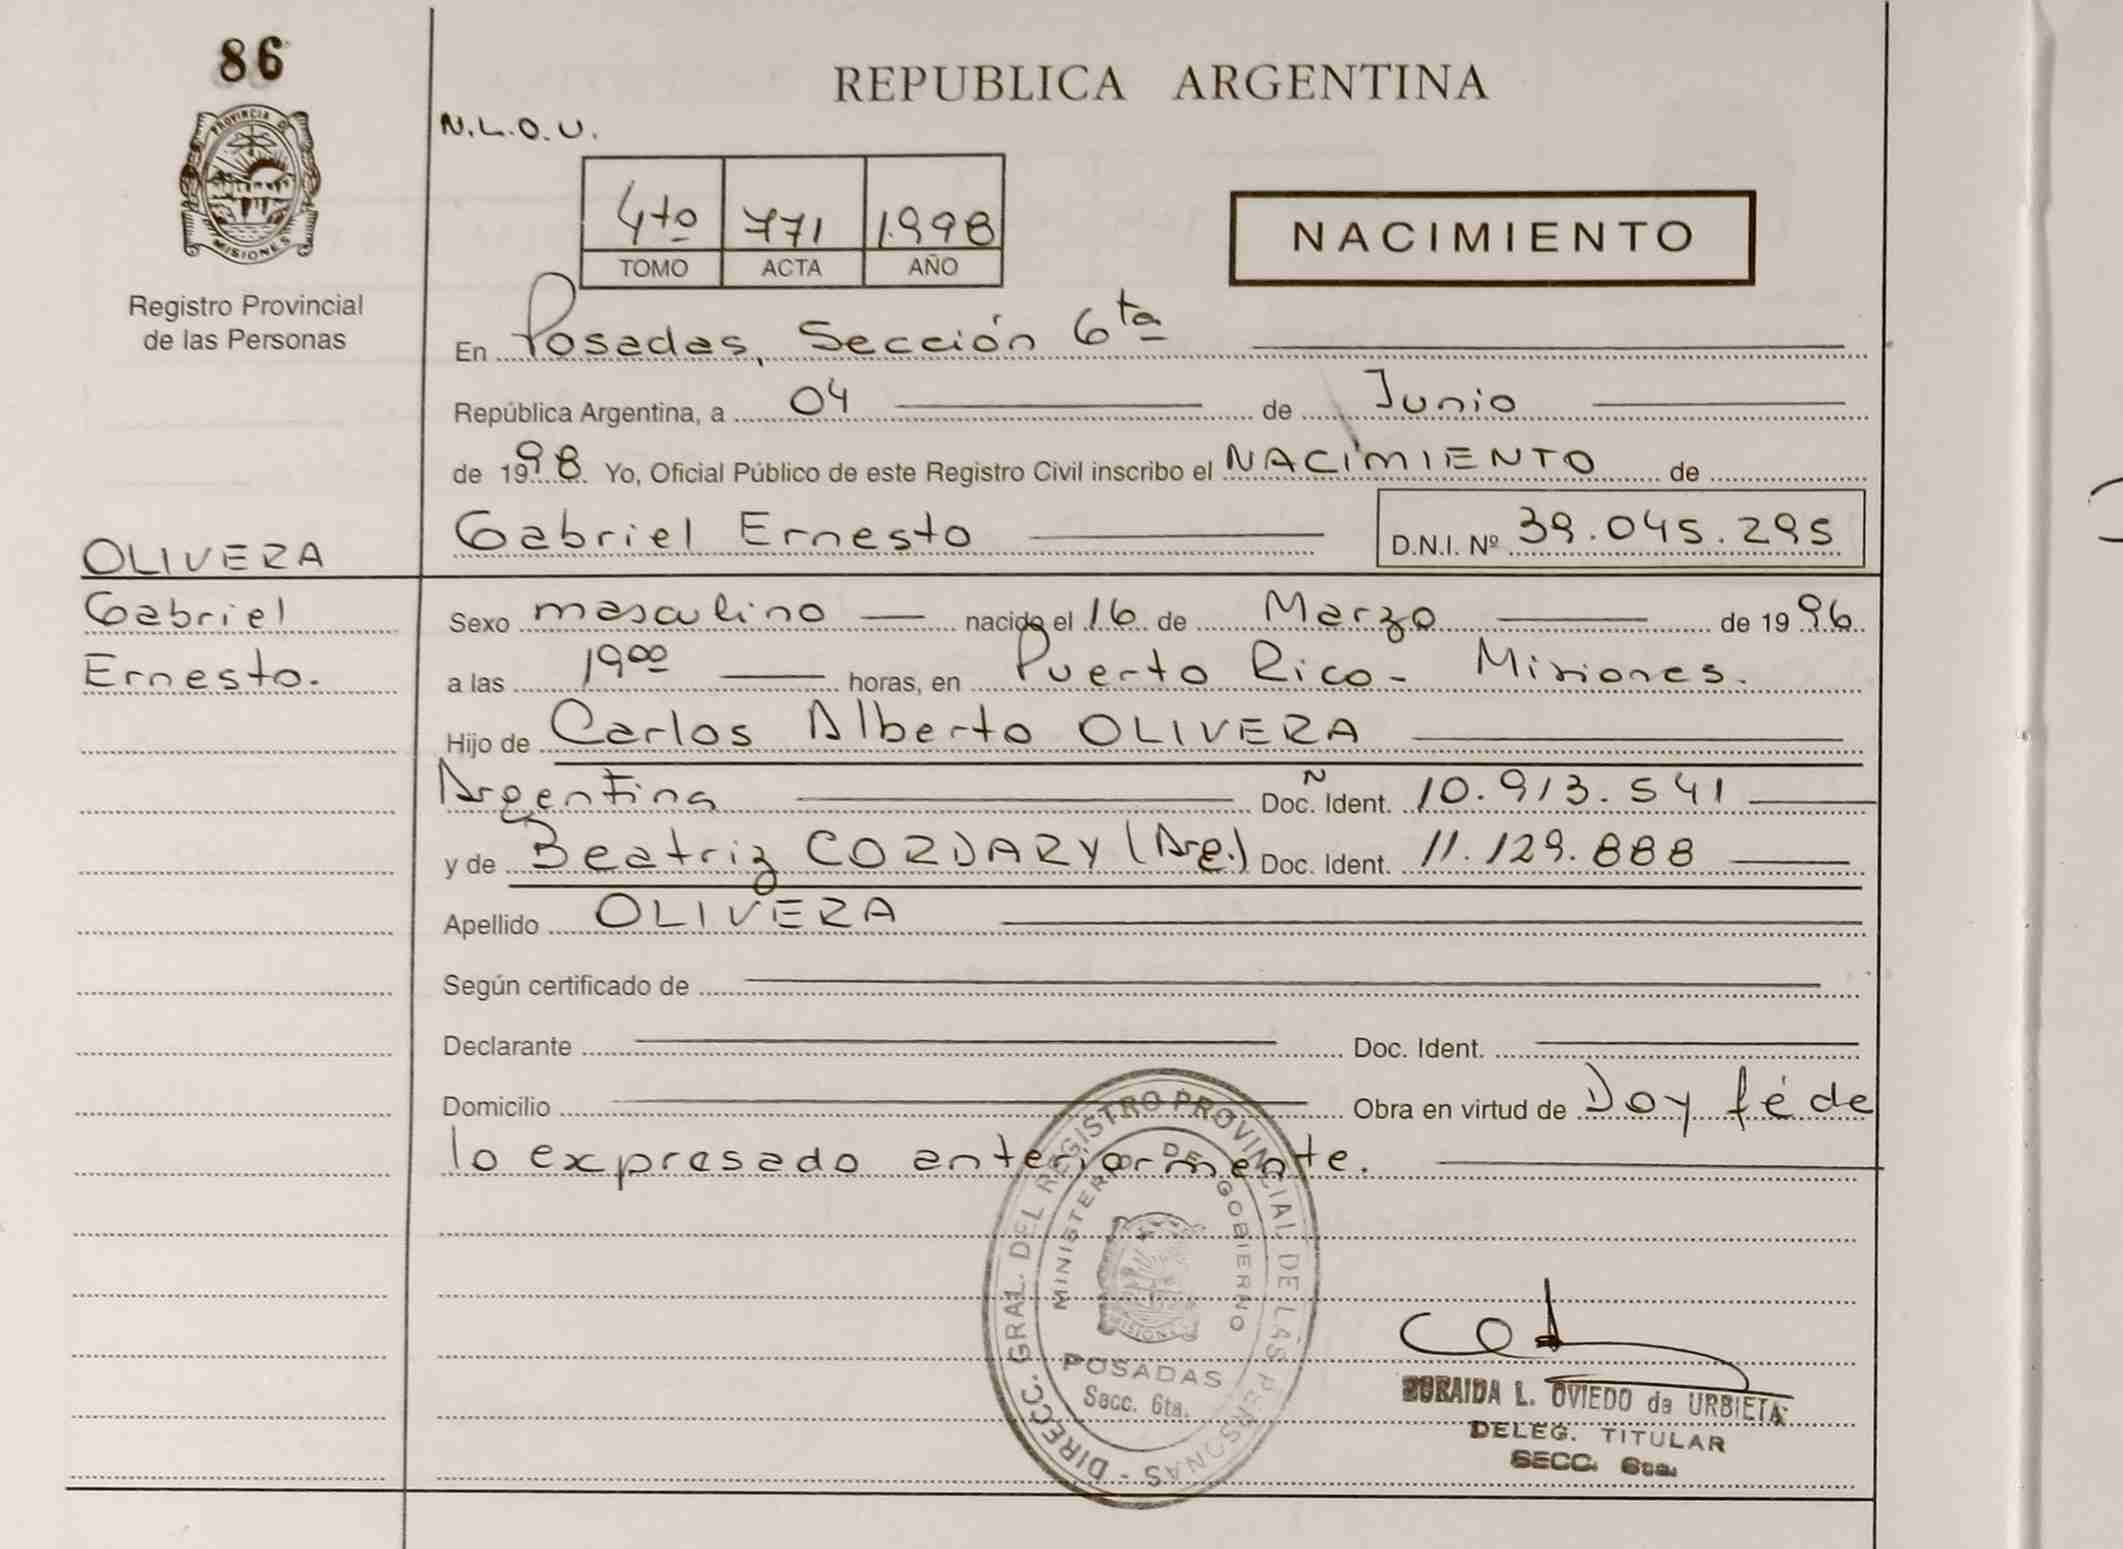 86
REPUBLICA ARGENTINA
PROVINCIA DE
MISIONES
Registro Provincial
de las Personas
N.L.O.U.
4to 771 1.998
TOMO ACTA AÑO
NACIMIENTO
En Posadas, Sección 6ta
República Argentina, a 04 de Junio
de 1998. Yo, Oficial Público de este Registro Civil inscribo el NACIMIENTO de
Gabriel Ernesto D.N.I. Nº 39.045.295
OLIVERA
Gabriel
Ernesto.
Sexo masculino nacido el 16 de Marzo de 1996
a las 1900 horas, en Puerto Rico - Misiones.
Hijo de Carlos Alberto OLIVERA
Argentina Doc. Ident. 10.913.541
y de Beatriz CORDARY (Arg.) Doc. Ident. 11.129.888
Apellido OLIVERA
Según certificado de
Declarante Doc. Ident.
Domicilio Obra en virtud de Doy fé de
lo expresado anteriormente.
DIRECC. GRAL. DEL REGISTRO PROVINCIAL DE LAS PERSONAS -
MINISTERIO DE GOBIERNO
MISIONES
POSADAS
Secc. 6ta.
ZORAIDA L. OVIEDO de URBIETA
DELEG. TITULAR
SECC. 6ta.